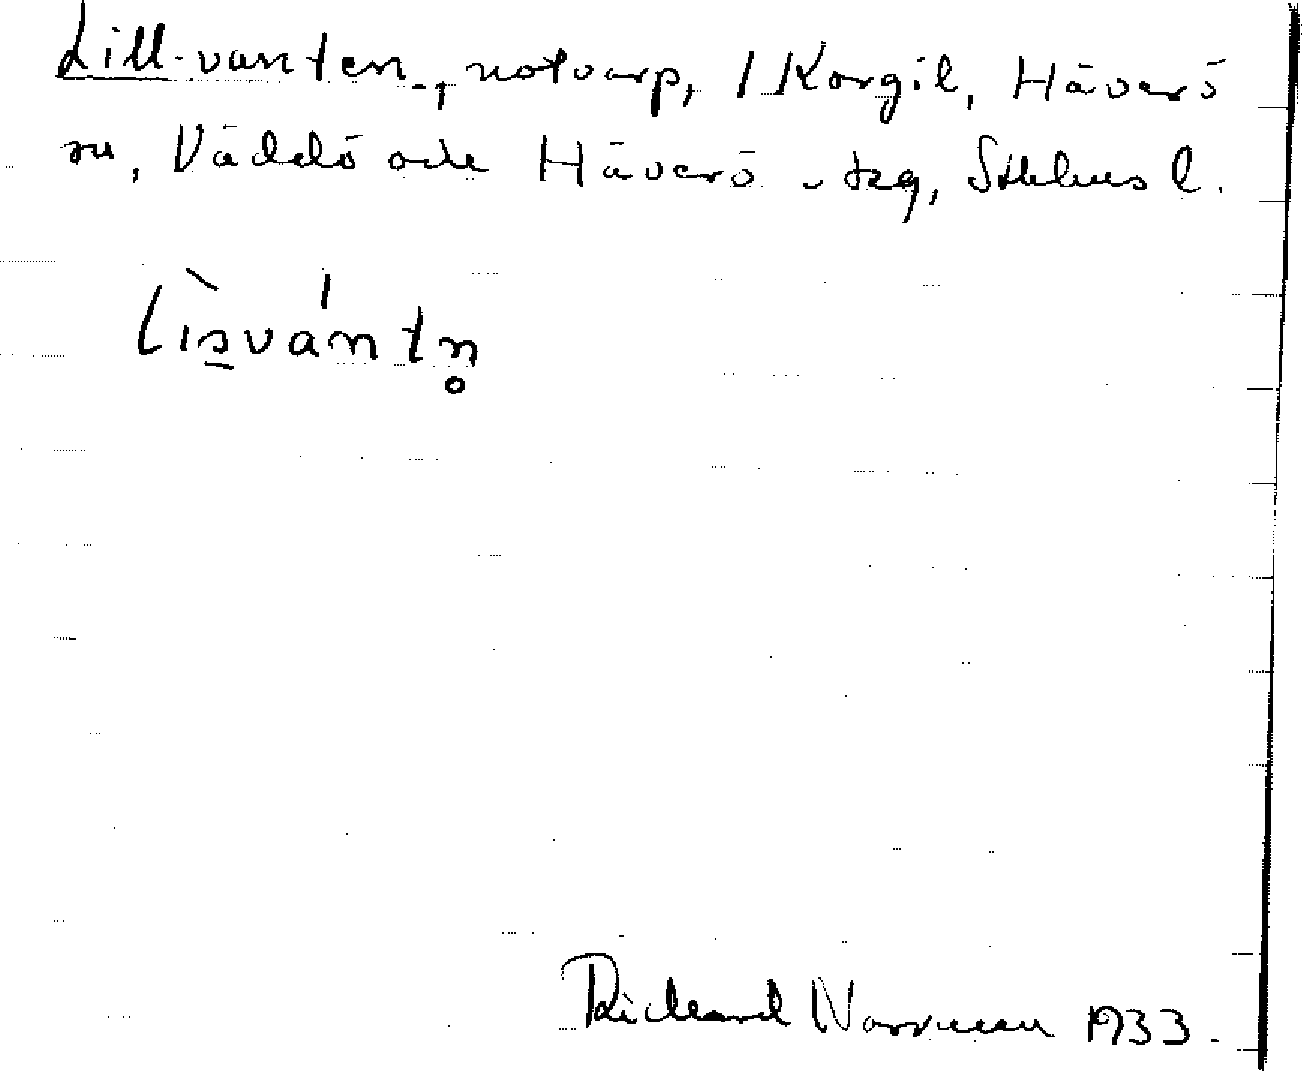 Lill-vanten, notvarp, 1 Korgil, Häverö
sn, Väddö och Häverö skg, Sthlms l.
lìsvántn̥
Richard Norrman 1933.